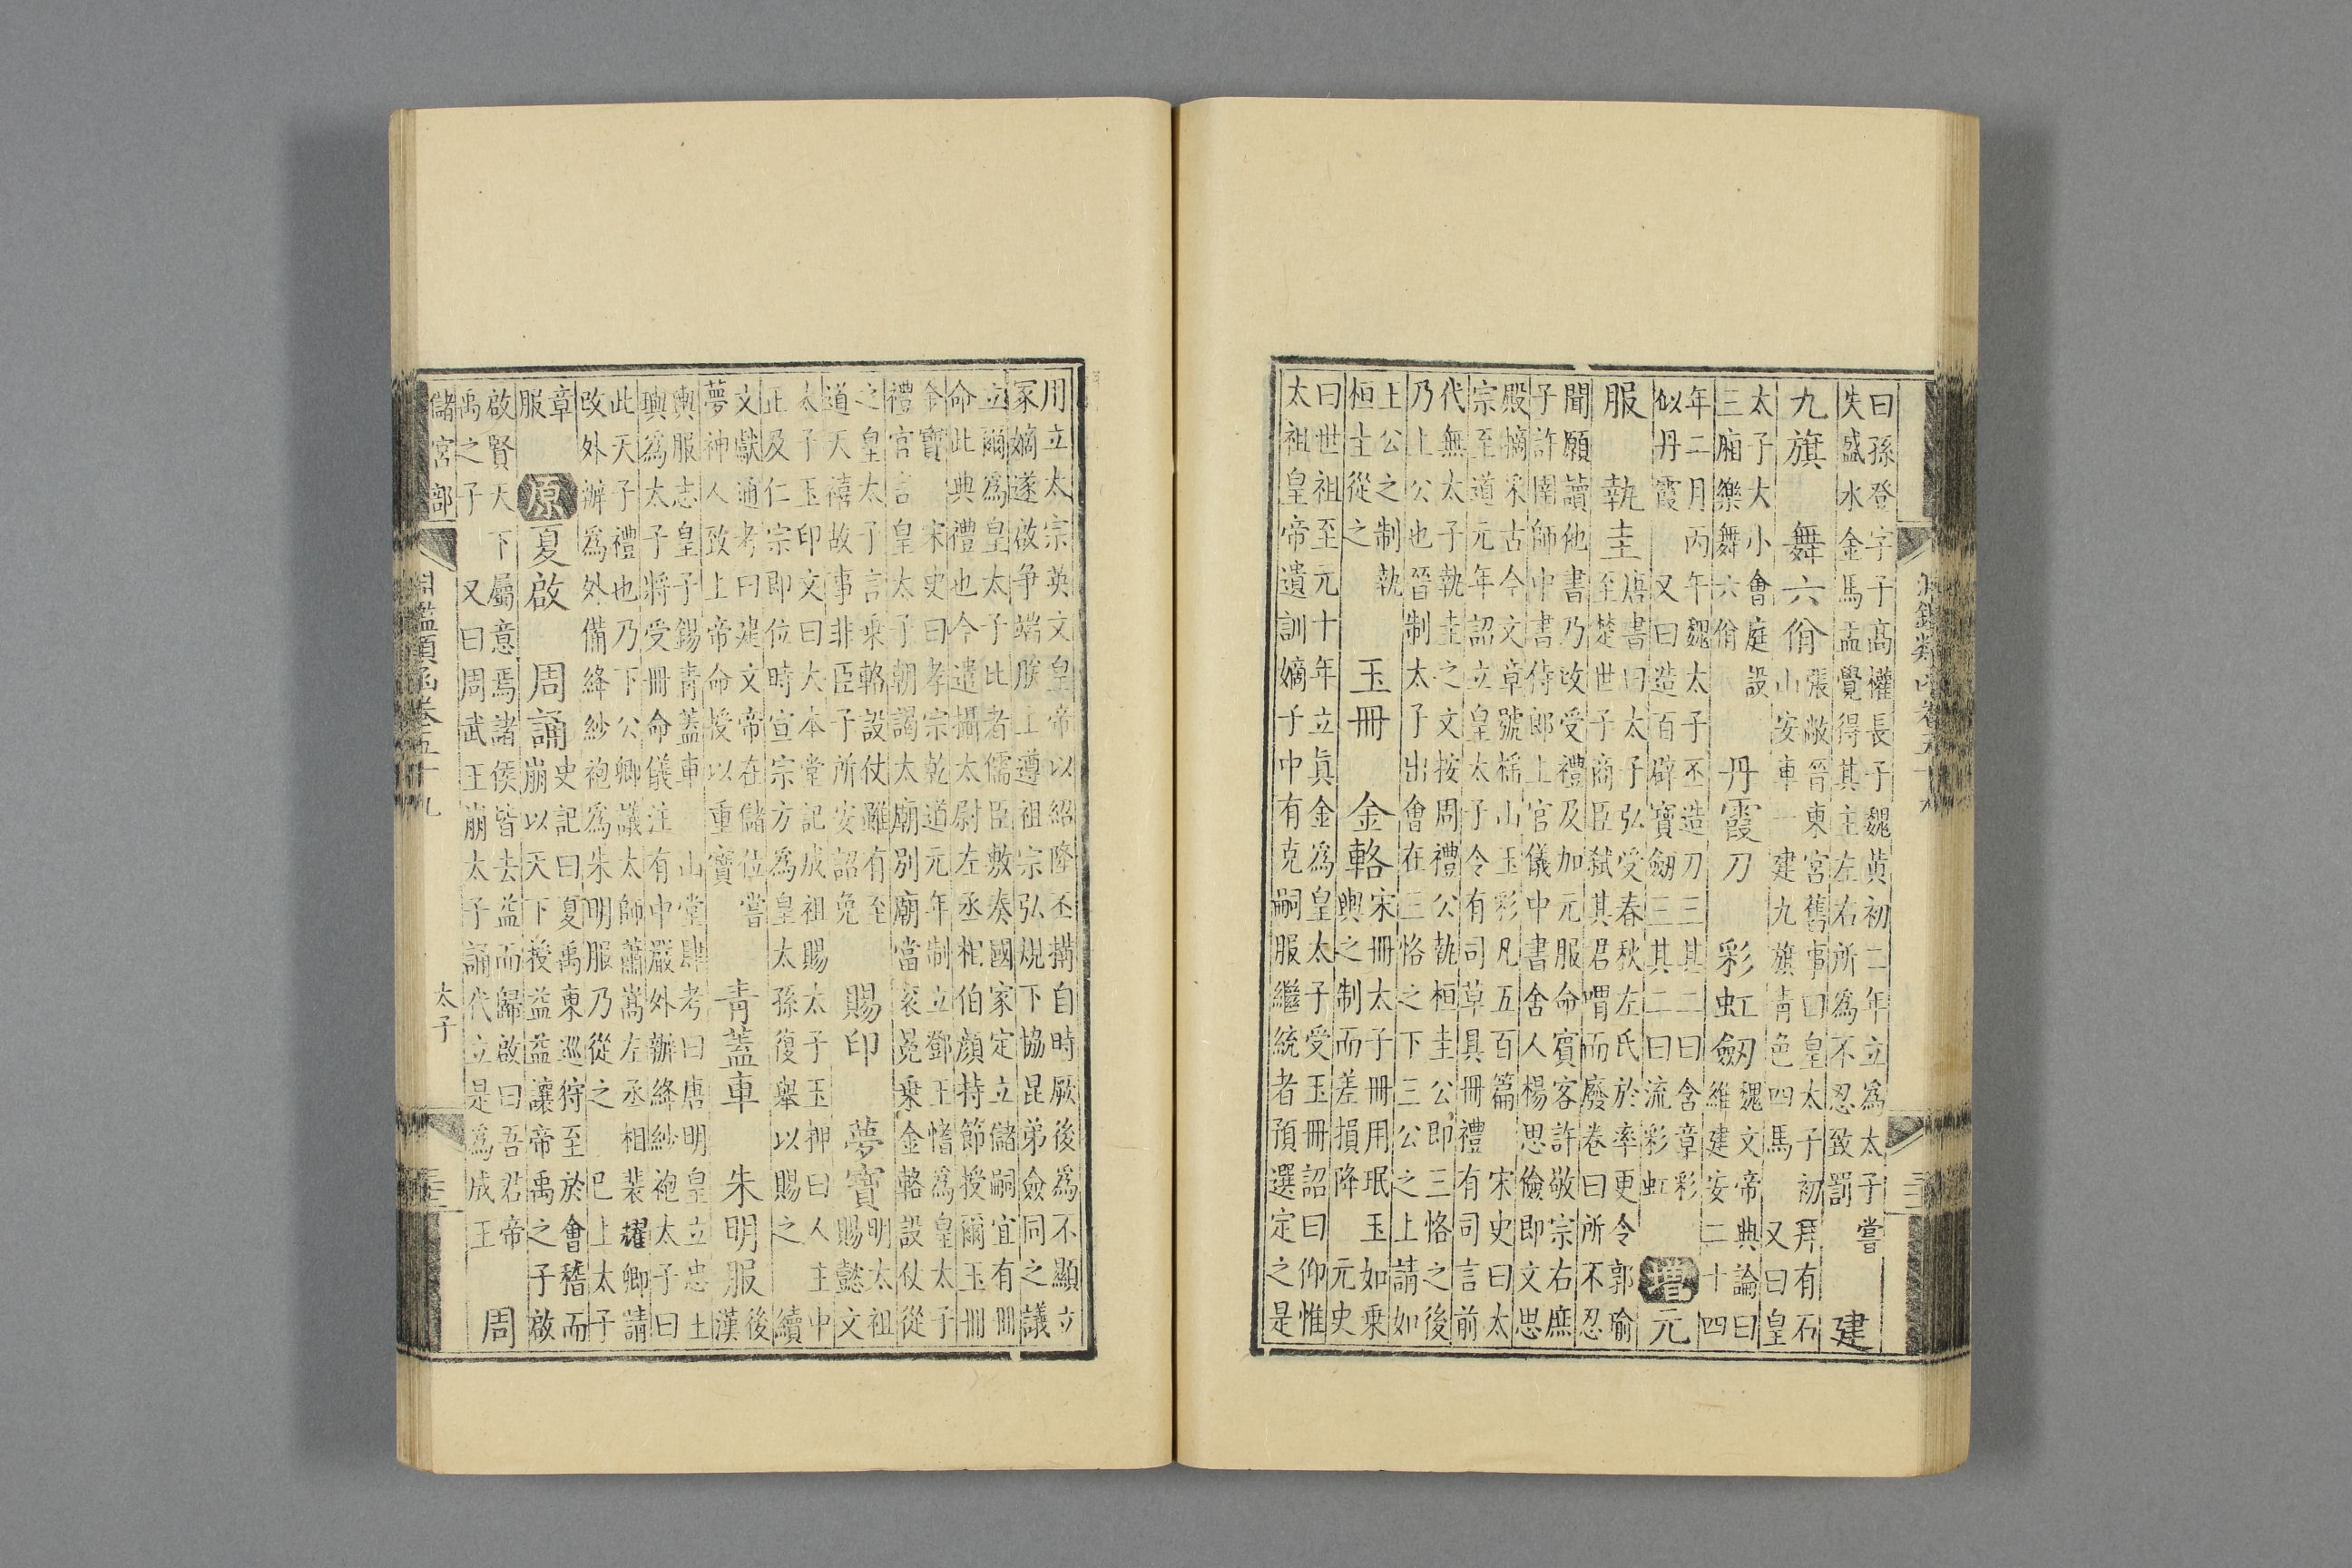 曰孫登字子高權長子魏黃初二年立為太子嘗
失盛水金馬盂覺得其主左右所為不忍致罰
建
九旗 舞六佾
張敞晉東宮舊事曰皇太子初拜有石
山安車一建九旗青色四馬 又曰皇
太子大小會庭設
三廂樂舞六佾
丹霞刀 彩虹劒
魏文帝典論曰
維建安二十四
年二月丙午魏太子丕造刀三其二曰含章彩
似丹霞 又曰造百辟寶劒三其二曰流彩虹
增 元
服 執圭
唐書曰太子弘受春秋左氏於率更令郭瑜
至楚世子商臣弒其君喟而廢卷曰所不忍
聞願讀他書乃改受禮及加元服命賓客許敬宗右庶
子許圉師中書侍郎上官儀中書舍人楊思儉即文思
殿摘采古今文章號稱山玉彩凡五百篇 宋史曰太
宗至道元年詔立皇太子令有司草具冊禮有司言前
代無太子執圭之文按周禮公執桓圭公即三恪之後
乃上公也晉制太子出會在三恪之下三公之上請如
上公之制執
桓圭從之
玉冊 金輅
宋冊太子冊用珉玉如乘
輿之制而差損降 元史
曰世祖至元十年立真金為皇太子受玉冊詔曰仰惟
太祖皇帝遺訓嫡子中有克嗣服繼統者預選定之是
用立太宗英文皇帝以紹隆丕搆自時厥後為不顯立
冢嫡遂啟爭端朕上遵祖宗弘規下協昆弟僉同之議
立爾為皇太子比者儒臣敷奏國家定立儲嗣宜有冊
命此典禮也今遣攝太尉左丞相伯顏持節授爾玉冊
金寶 宋史曰孝宗乾道元年制立鄧王愭為皇太子
禮官言皇太子朝謁太廟別廟當衮冕乘金輅設仗從
之皇太子言乘輅設仗雖有至
道天禧故事非臣子所安詔免
賜印 夢寶
明太祖
賜懿文
太子玉印文曰大本堂記成祖賜太子玉押曰人主中
正及仁宗即位時宣宗方為皇太孫復舉以賜之 續
文獻通考曰建文帝在儲位嘗
夢神人致上帝命授以重寶
青蓋車 朱明服
後
漢
輿服志皇子錫青蓋車 山堂肆考曰唐明皇立忠王
輿為太子將受冊命儀注有中嚴外辦絳紗袍太子曰
此天子禮也乃下公卿議太師蕭嵩左丞相裴耀卿請
改外辦為外備絳紗袍為朱明服乃從之 已上太子
章
服
原 夏啟 周誦
史記曰夏禹東巡狩至於會稽而
崩以天下授益益讓帝禹之子啟
啟賢天下屬意焉諸侯皆去益而歸啟曰吾君帝
禹之子 又曰周武王崩太子誦代立是為成王
周
儲宮部 淵鑑類函卷五十九 太子